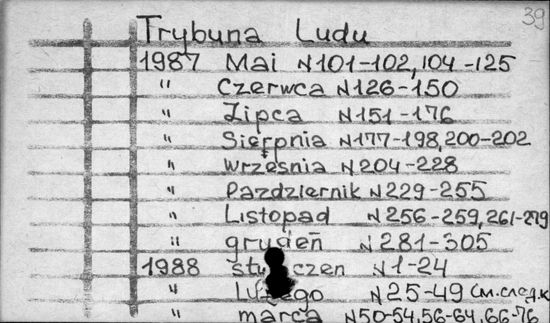 39
Trybuna Ludu
1987 Mai N 101-102, 104-125
" Czerwca N 126-150
" Lipca N 151-176
" Sierpnia N 177-198, 200-202
" września N 204-228
" Pazdziernik N 229-255
" Listopad N 256-259, 261-279
" grudień N 281-305
1988 N 1-24
" N 25-49 См. след. к
" marca N 50-54, 56-64, 66-76